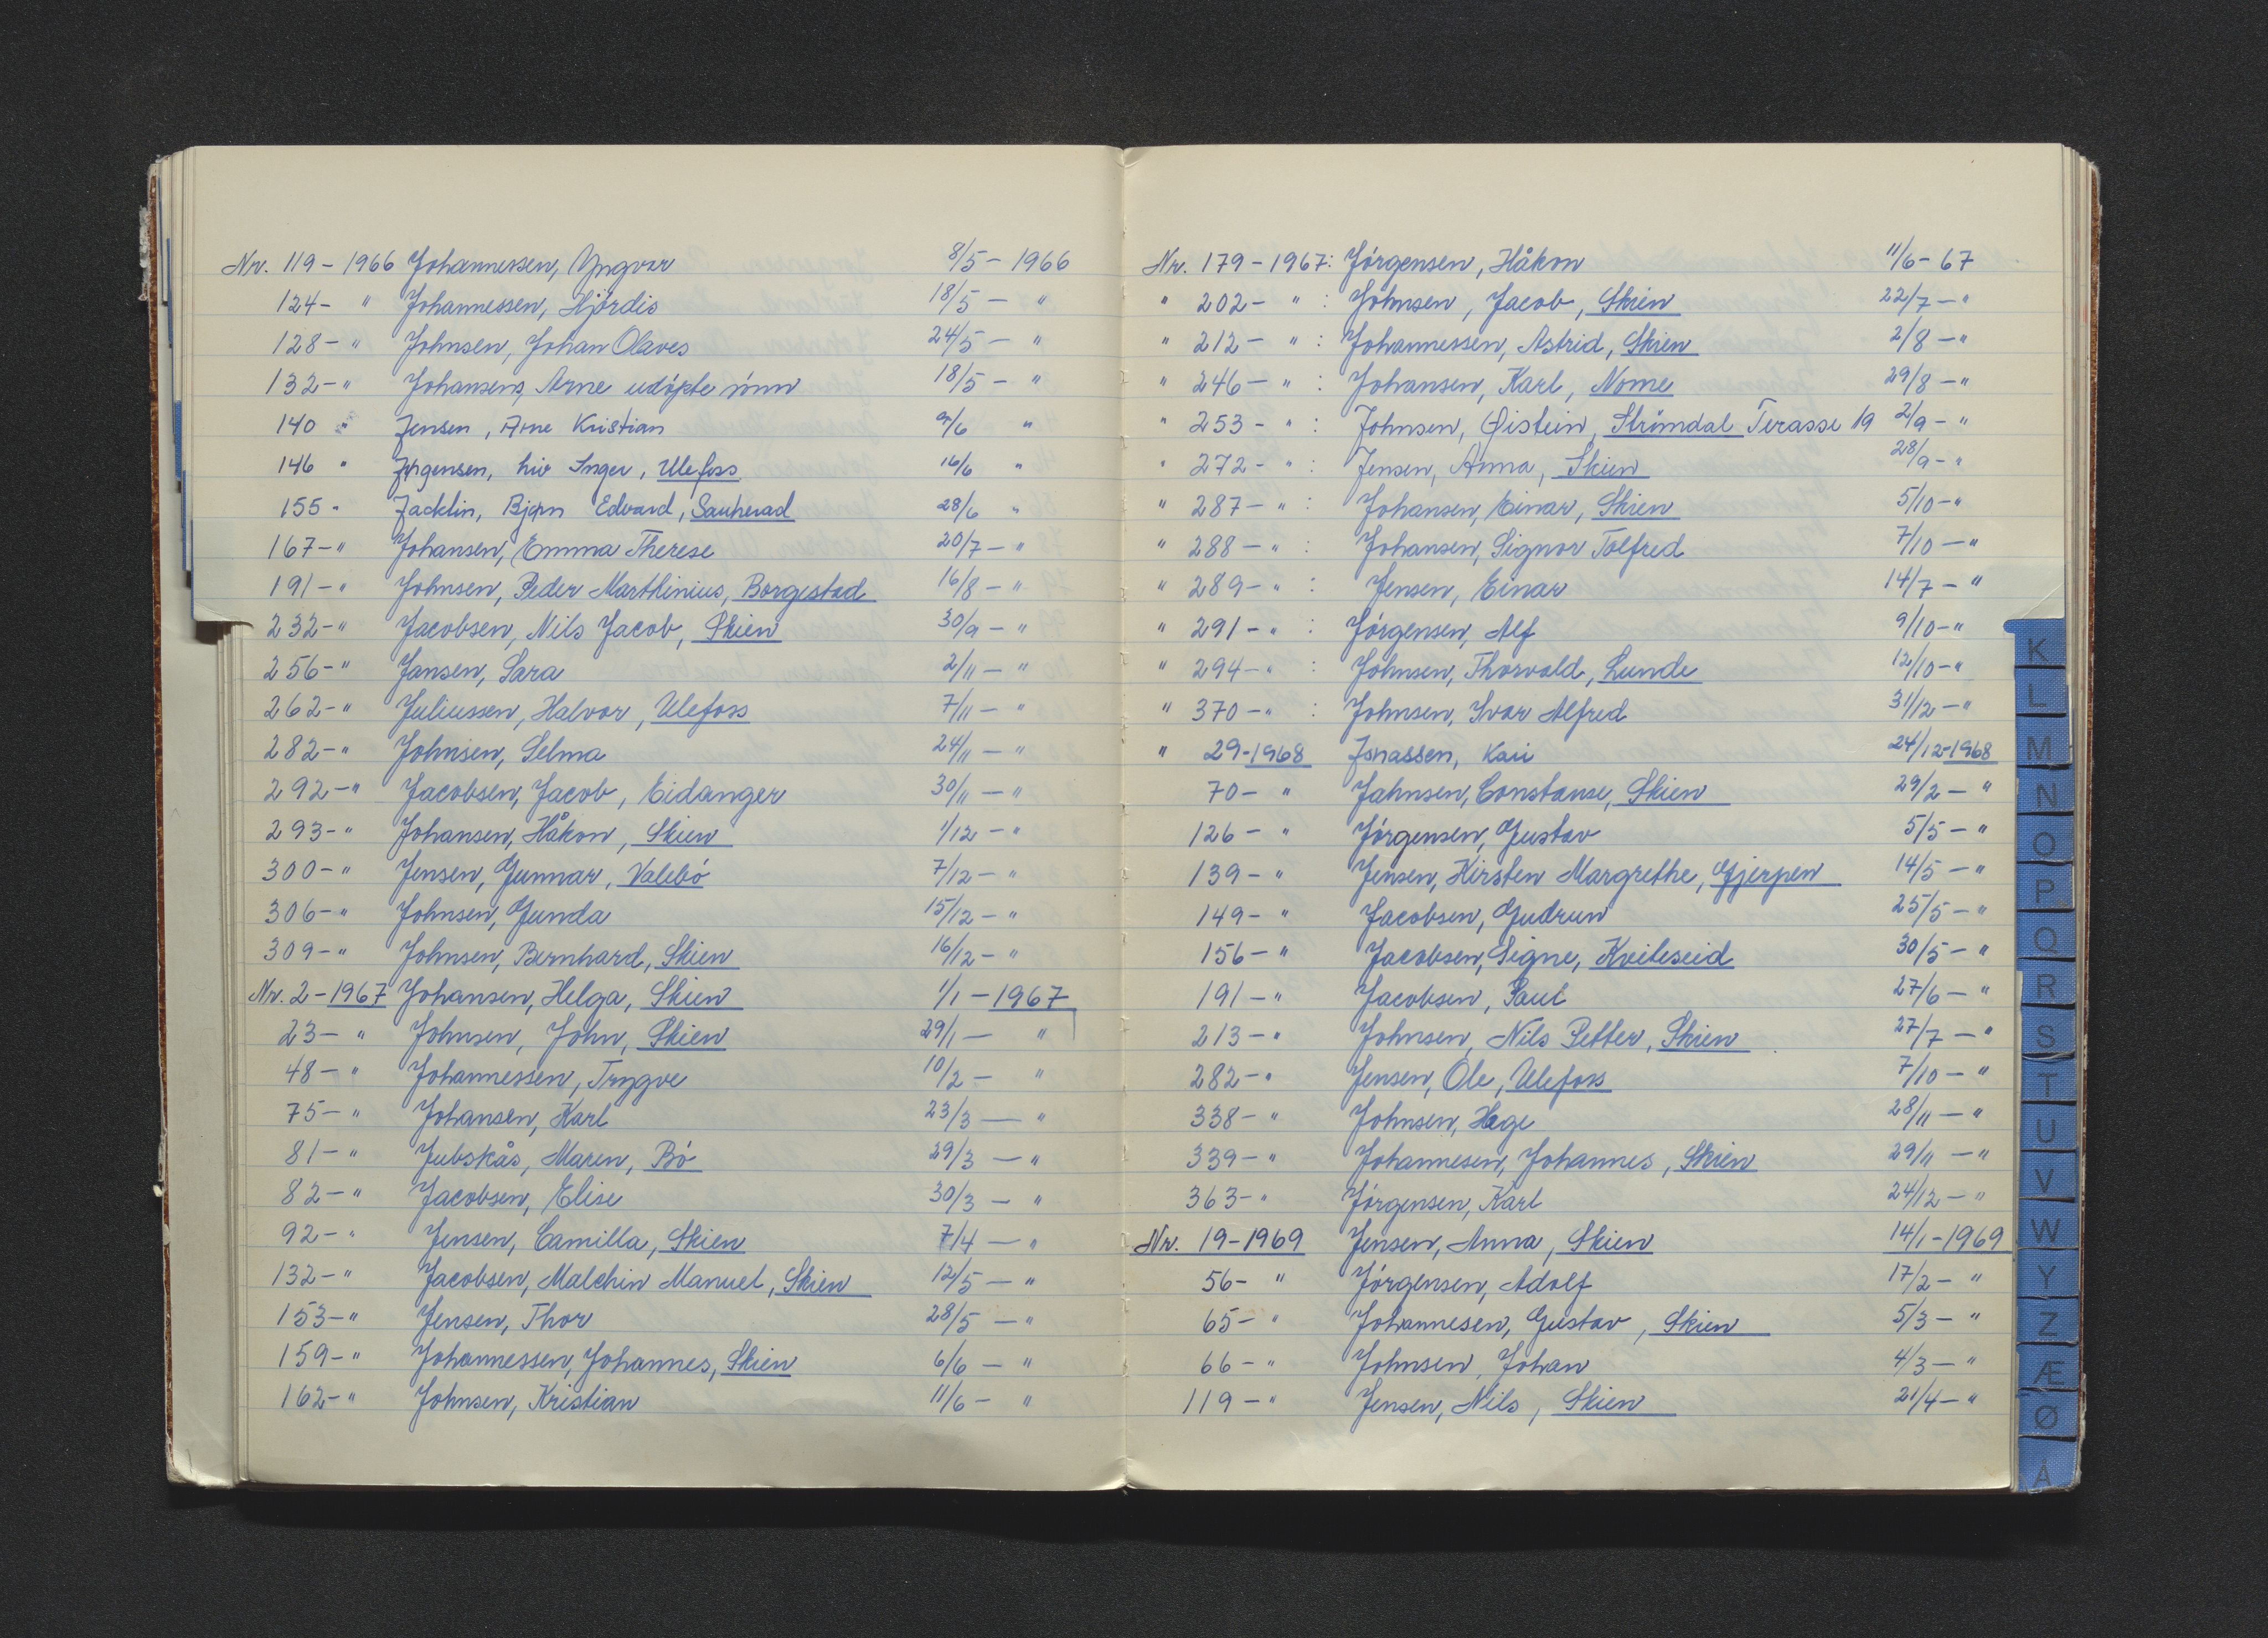 Nr. 119 - 1966 Johannessen, Yngvar 8/5 - 1966
124 - " Johannessen, Hjördis 18/5 - "
128 - " Johnsen, Johan Olaves 24/5 - "
132 - " Johansens, Arne udöpte sönn 18/5 - "
140 " Jensen, Arne Kristian 9/6 "
146 " Jørgensen, hiv Inger, Ulefoss 16/6 "
155 " Jacklin, Bjørn Edvard, Sauherad 28/6 "
167 - " Johansen, Emma Therese 20/7 - "
191 - " Johnsen, Peder Marthinius, Borgestad 16/8 - "
232 - " Jacobsen, Nils Jacob, Skien 30/9 - "
256 - " Jansen, Sara 2/11 - "
262 - " Juliussen, Halvor, Ulefoss 7/11 - "
282 - " Johnsen, Selma 24/11 - "
292 - " Jacobsen, Jacob, Eidanger 30/11 - "
293 - " Johansen, Håkon, Skien 1/12 - "
300 - " Jensen, Gunnar, Valebö 7/12 - "
306 - " Johnsen, Gunda 15/12 - "
309 - " Johnsen, Bernhard, Skien 16/12 - "
Nr. 2 - 1967 Johansen, Helga, Skien 1/1 - 1967
23 - " Johnsen, John, Skien 29/1 - "
48 - " Johannessen, Trygve 10/2 - "
75 - " Johansen, Karl 23/3 - "
81 - " Jubskås, Maren, Bö 29/3 - "
82 - " Jacobsen, Elise 30/3 - "
92 - " Jensen, Camilla, Skien 7/4 - "
132 - " Jacobsen, Malchin Manuel, Skien 12/5 - "
153 - " Jensen, Thor 28/5 - "
159 - " Johannessen, Johannes, Skien 6/6 - "
162 - " Johnsen, Kristian 11/6 - "
Nr. 179 - 1967: Jörgensen, Håkon 11/6 - 67
" 202 - " : Johnsen, Jacob, Skien 22/7 - "
" 212 - " : Johannessen, Astrid, Skien 2/8 - "
" 246 - " : Johansen, Karl, Nome 29/8 - "
" 253 - " : Johnsen, Øistein, Strömdal Terasse 19 2/9 - "
" 272 - " : Jensen, Anna, Skien 28/9 - "
" 287 - " : Johansen, Einar, Skien 5/10 - "
" 288 - " : Johansen, Signor Tolfred 7/10 - "
" 289 - " : Jensen, Einar 14/7 - "
" 291 - " : Jörgensen, Alf 9/10 - "
" 294 - " : Johnsen, Thorvald, Lunde 12/10 - "
" 370 - " : Johnsen, Ivar Alfred 31/12 - "
" 29 - 1968 Jonassen, Kari 24/12 - 1968
70 - " Jahnsen, Constanse, Skien 29/2 - "
126 - " Jörgensen, Gustav 5/5 - "
139 - " Jensen, Kirsten Margrethe, Gjerpen 14/5 - "
149 - " Jacobsen, Gudrun 25/5 - "
156 - " Jacobsen, Signe, Kviteseid 30/5 - "
191 - " Jacobsen, Paul 27/6 - "
213 - " Johnsen, Nils Petter, Skien 27/7 - "
282 - " Jensen, Ole, Ulefoss 7/10 - "
338 - " Johnsen, Hege 28/11 - "
339 - " Johannesen, Johannes, Skien 29/11 - "
363 - " Jörgensen, Karl 24/12 - "
Nr. 19 - 1969 Jensen, Anna, Skien 14/1 - 1969
56 - " Jörgensen, Adolf 17/2 - "
65 - " Johannesen, Gustav, Skien 5/3 - "
66 - " Johnsen, Johan 4/3 - "
119 - " Jensen, Nils, Skien 21/4 - "
K
L
M
N
O
P
Q
R
S
T
U
V
W
Y
Z
Æ
Ø
Å